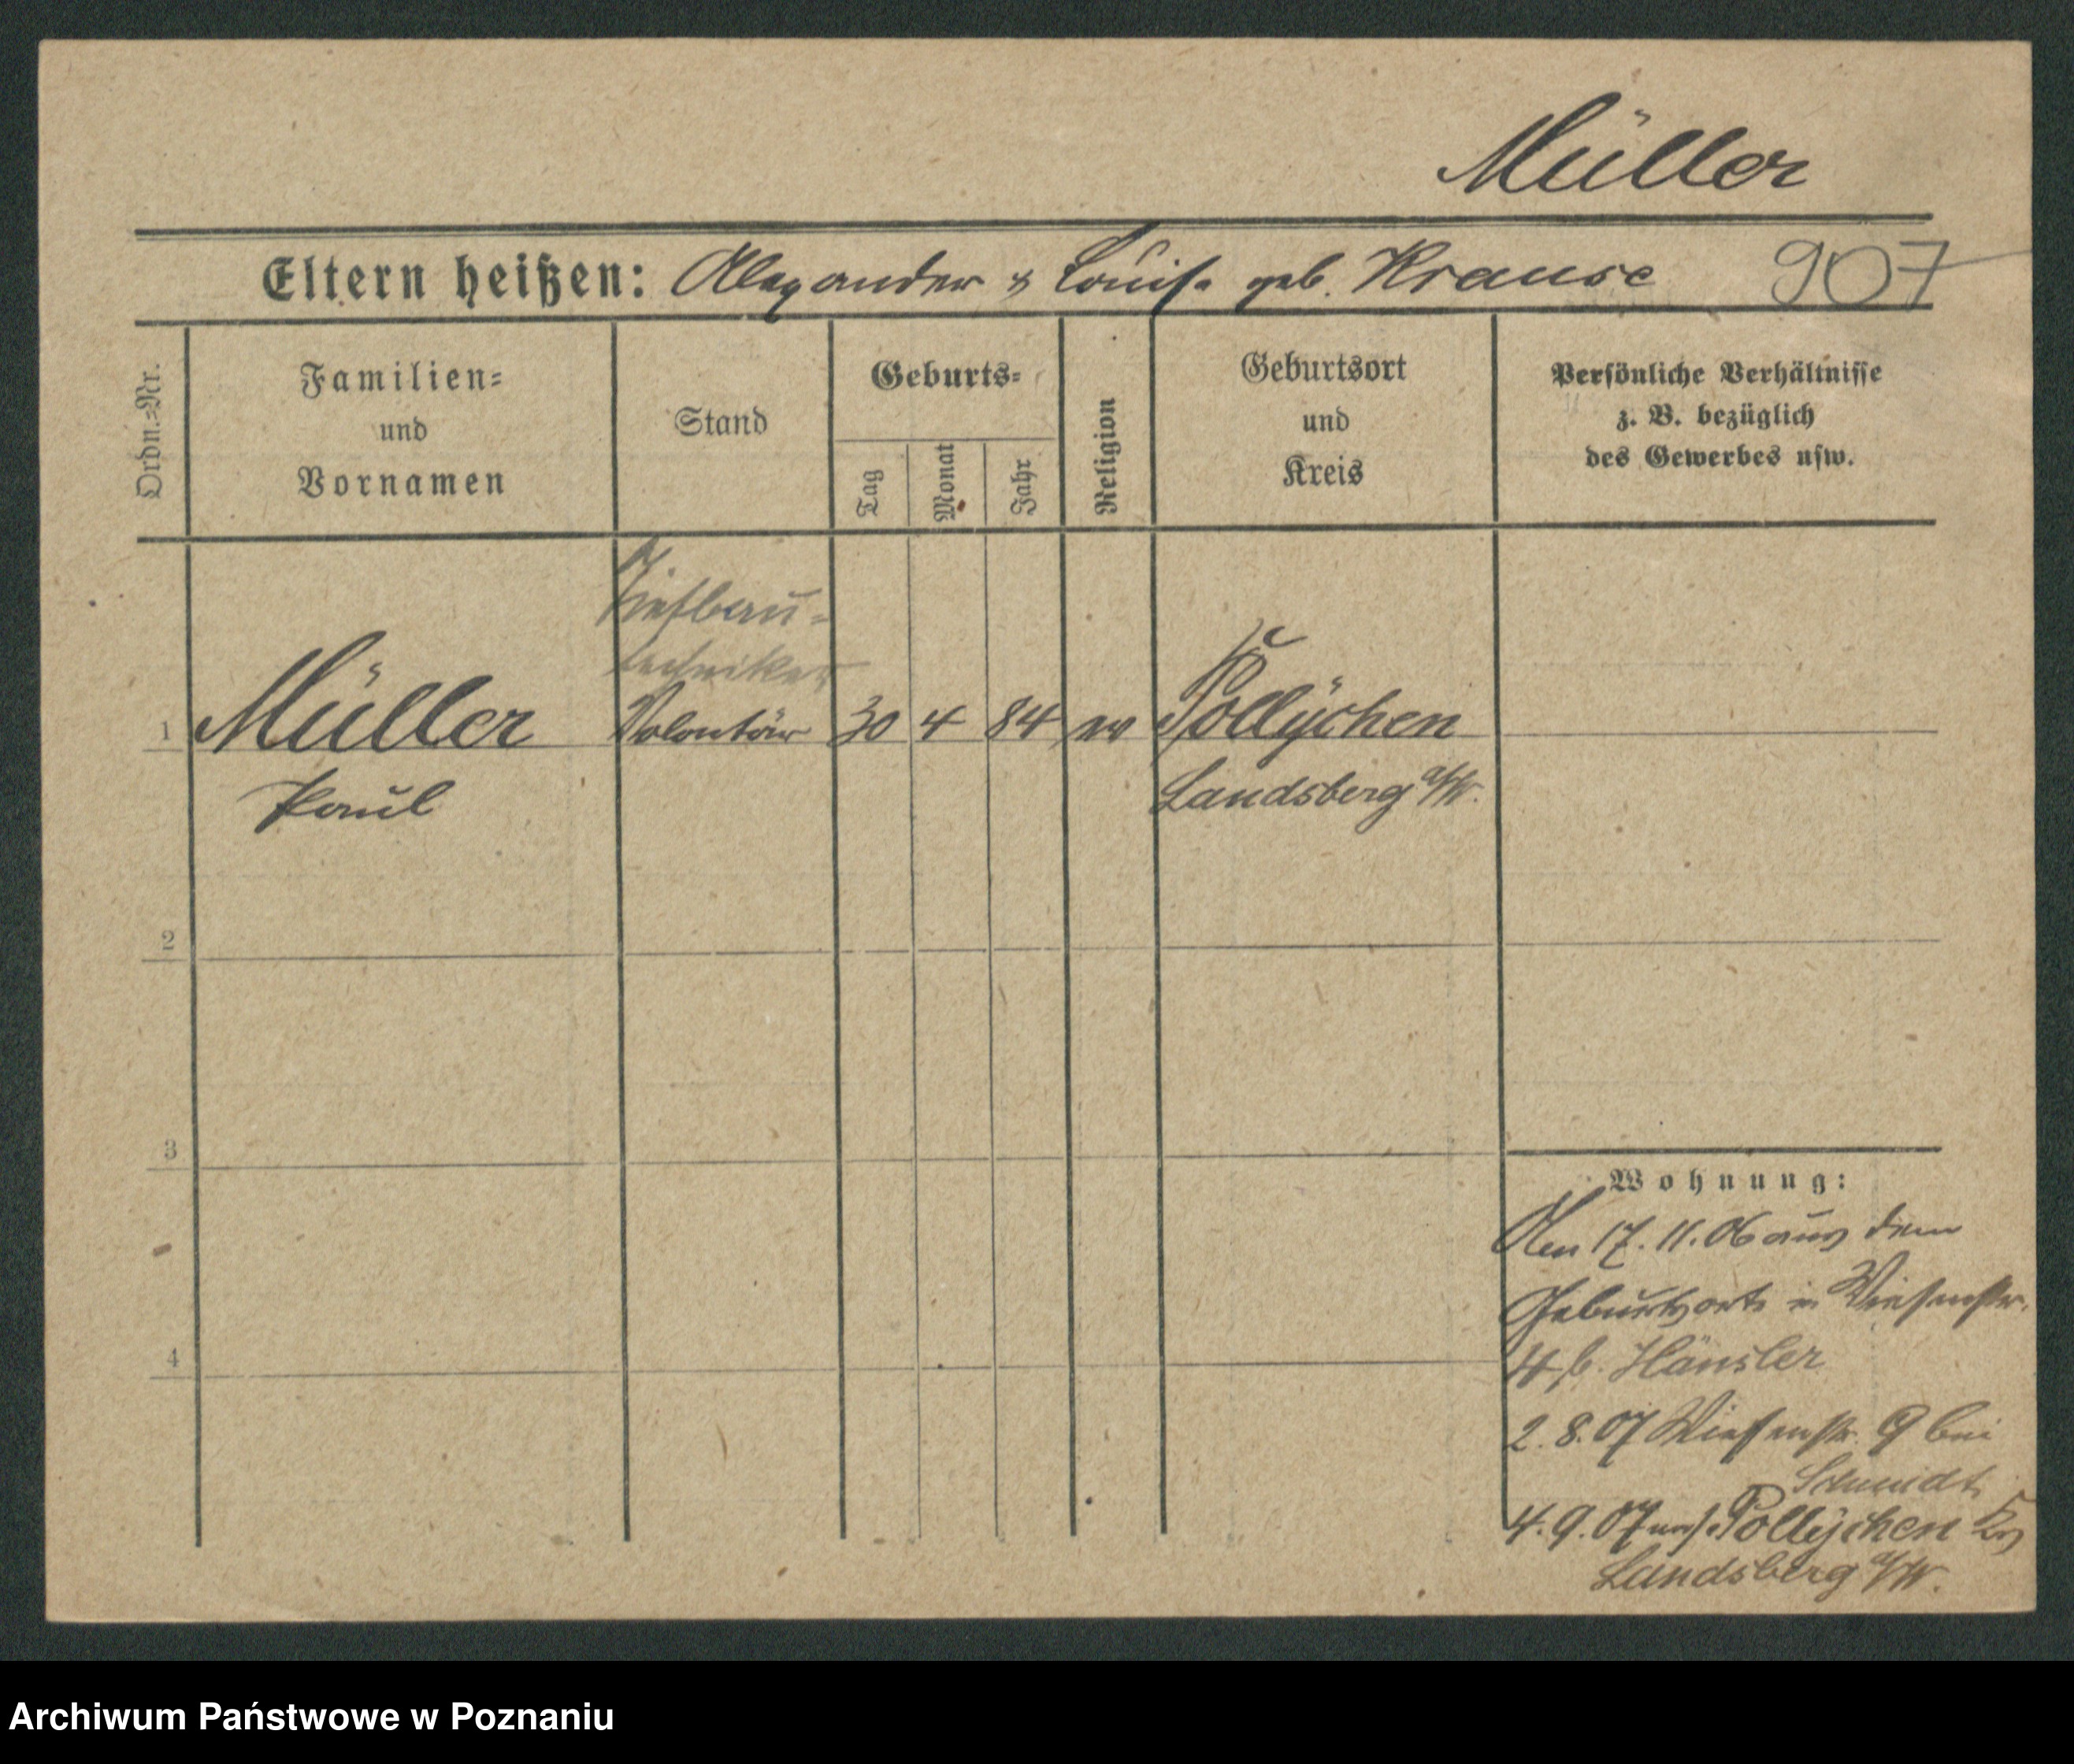 Müller
Eltern heißen: Alexander & Louise geb. Krause 907
Ordn.=Nr.
Familien=
und
Vornamen
Stand
Geburts=
Tag
Monat
Jahr
Religion
Geburtsort
und
Kreis
Persönliche Verhältnisse
z. B. bezüglich
des Gewerbes usw.
Tiefbau=
techniker
1 Müller Volontär 30 4 84 Pollychen
Paul Landsberg a/W.
2
3
4
Wohnung:
Am 17. 11. 06 aus dem
Geburtsorte in Wiesenstr.
4 b. Hänsler
2. 8. 07 Wiesenstr. 9 bei
Schmidt
4. 9. 07 nach Pollychen Krs
Landsberg a/W.
Archiwum Państwowe w Poznaniu